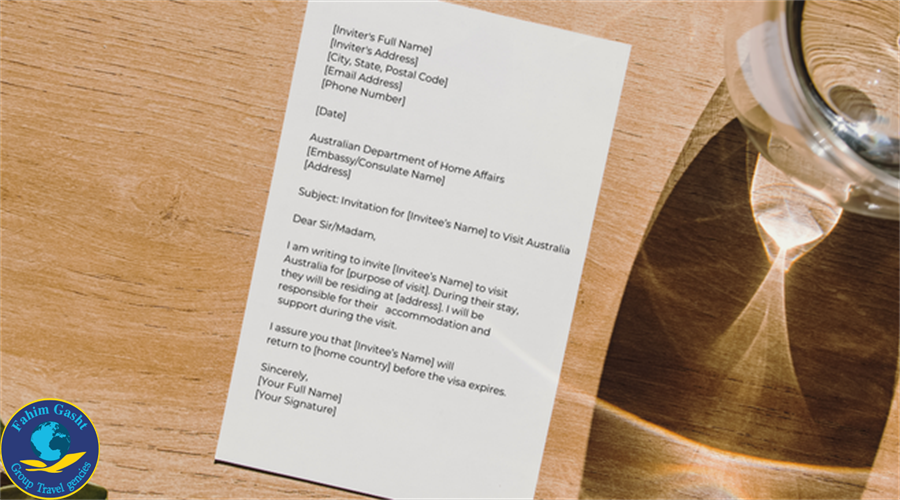 [Inviter's Full Name]
[Inviter's Address]
[City, State, Postal Code]
[Email Address]
[Phone Number]
[Date]
Australian Department of Home Affairs
[Embassy/Consulate Name]
[Address]
Subject: Invitation for [Invitee's Name] to Visit Australia
Dear Sir/Madam,
I am writing to invite [Invitee's Name] to visit
Australia for [purpose of visit]. During their stay,
they will be residing at [address]. I will be
responsible for their accommodation and
support during the visit.
I assure you that [Invitee's Name] will
return to [home country] before the visa expires.
Sincerely,
[Your Full Name]
[Your Signature]
Fahim Gasht
Group Travel gencies